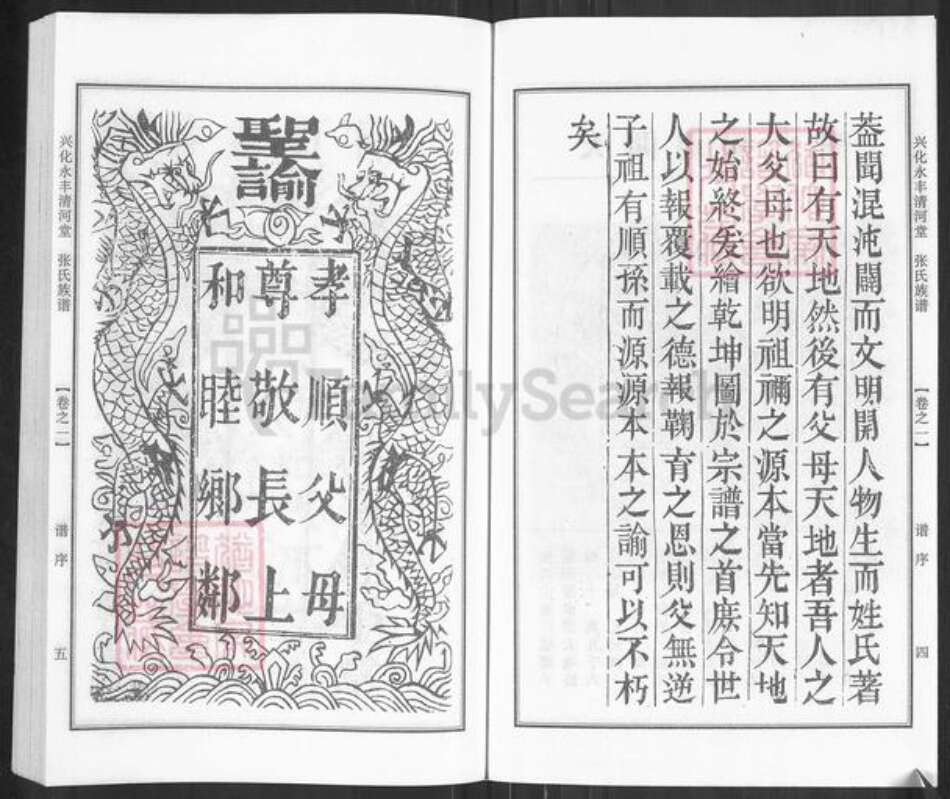 兴化永丰清河堂 张氏族谱
【卷之一】
谱序
四
蓋聞混沌闢而文明開人物生而姓氏著
故曰有天地然後有父母天地者吾人之
大父母也欲明祖禰之源本當先知天地
之始終爰繪乾坤圖於宗譜之首庶令世
人以報覆載之德報鞠育之恩則父無逆
子祖有順孫而源源本本之諭可以不朽
矣
聖諭
孝順父母
尊敬長上
和睦鄉鄰
兴化永丰清河堂 张氏族谱
【卷之一】
谱序
五
FamilySearch